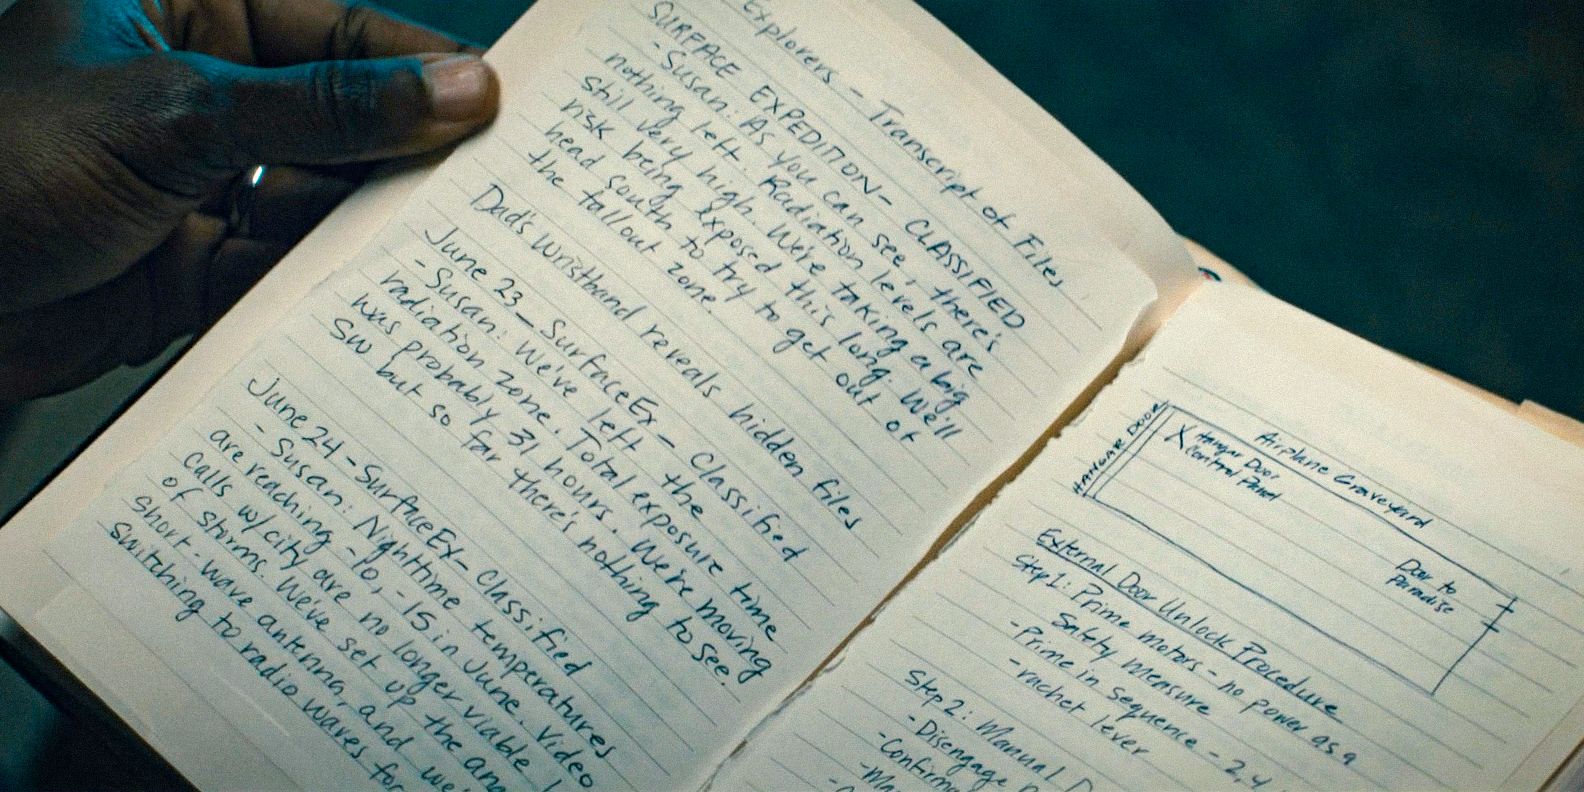 Explorers - Transcript of Files
SURFACE EXPEDITION - CLASSIFIED
- Susan: As you can see, there's
nothing left. Radiation levels are
still very high. We're taking a big
risk being exposed this long. We'll
head south to try to get out of
the fallout zone.
Dad's Wristband reveals hidden files
June 23 - SurfaceEx - Classified
- Susan: We've left the
radiation zone. Total exposure time
was probably 31 hours. We're moving
SW but so far there's nothing to see.
June 24 - SurfaceEx - Classified
- Susan: Nighttime temperatures
are reaching -10, -15 in June. Video
calls w/city are no longer viable
of storms. We've set up the
short-wave antenna, and we
switching to radio waves for
Airplane Graveyard
HANGAR DOOR
X Hangar Door
Control Panel
Door to
Paradise
External Door Unlock Procedure
Step 1: Prime motors - no power as a
Safety measure
- Prime in sequence - 2, 4
- rachet lever
Step 2: Manual
- Disengage